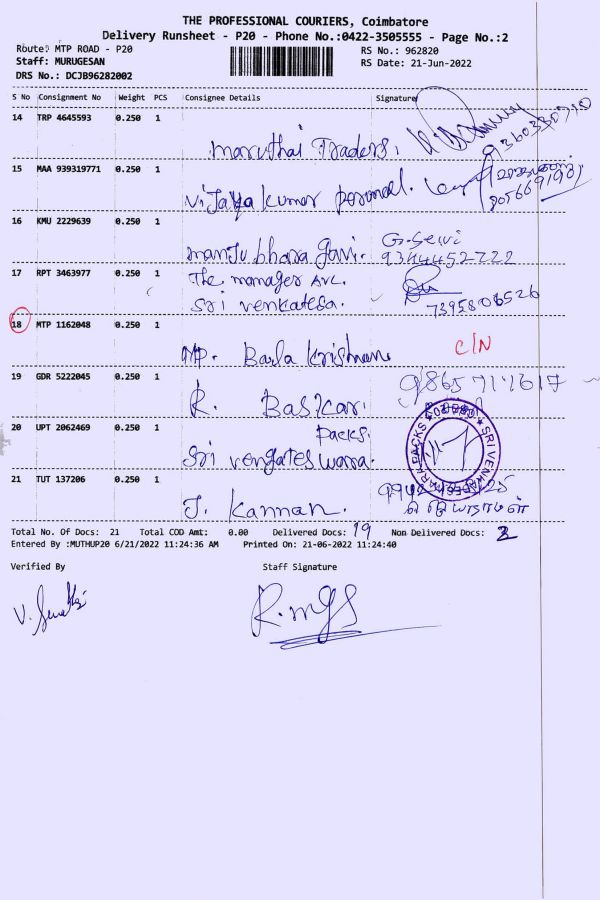 THE PROFESSIONAL COURIERS, Coimbatore
Delivery Runsheet - P20 - Phone No.:0422-3505555 - Page No.:2
Route: MTP ROAD - P20
RS No.: 962820
Staff: MURUGESAN
RS Date: 21-Jun-2022
DRS No.: DCJB96282002
S No Consignment No Weight PCS Consignee Details Signature
14 TRP 4645593 0.250 1
maruthai Traders.
9360330710
15 MAA 939319771 0.250 1
Vijaya kumar perumal.
16 KMU 2229639 0.250 1
manju bhara gavi. G. Selvi
9344452722
17 RPT 3463977 0.250 1 The manager
Sri venkatesa. 7395806526
18 MTP 1162048 0.250 1
MP. Barla Krishnan C/N
19 GDR 5222045 0.250 1
R. Baskar.
20 UPT 2062469 0.250 1 Packs.
Sri vengateswara.
SRI VENKATESWARA PACKS
21 TUT 137206 0.250 1
J. Kannan.
Total No. Of Docs: 21 Total COD Amt: 0.00 Delivered Docs: 19 Non Delivered Docs: 2
Entered By :MUTHUP20 6/21/2022 11:24:36 AM Printed On: 21-06-2022 11:24:40
Verified By Staff Signature